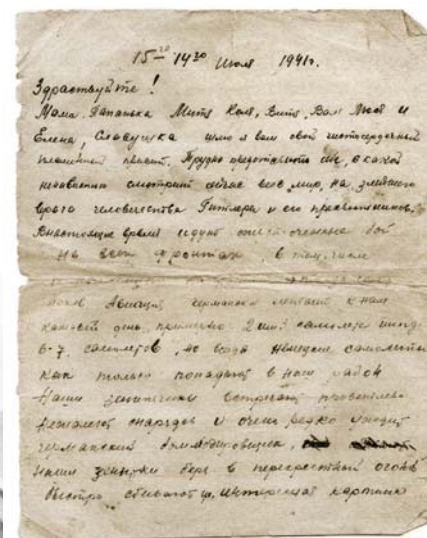 15 20 14 20 Июля 1941г.
Здраствуйте!
Мама. Папанька Митя Коля, Витя, Вам Люся и
Елена, Славушка шлю я вам свой чистосердечный
пламенный привет. Трудно представить , с какой
ненавистью смотрит сейчас весь мир, на злейшего
врага человечества Гитлера и его
Внастоящие время идут ожесточенные бои
на всех фронтах, в том, числе
Авиация германская летает к нам
каждый день, примерно 2 3 самолета иногда
6-7 самолетов, но когда Немецкие самолеты
как только попадают в наш район
Наши зенитчики встречают
снарядов и очень редко уходит
германский бомбардировщик,
Наши зенитки в перекрестный огонь
быстро сбивают картинка